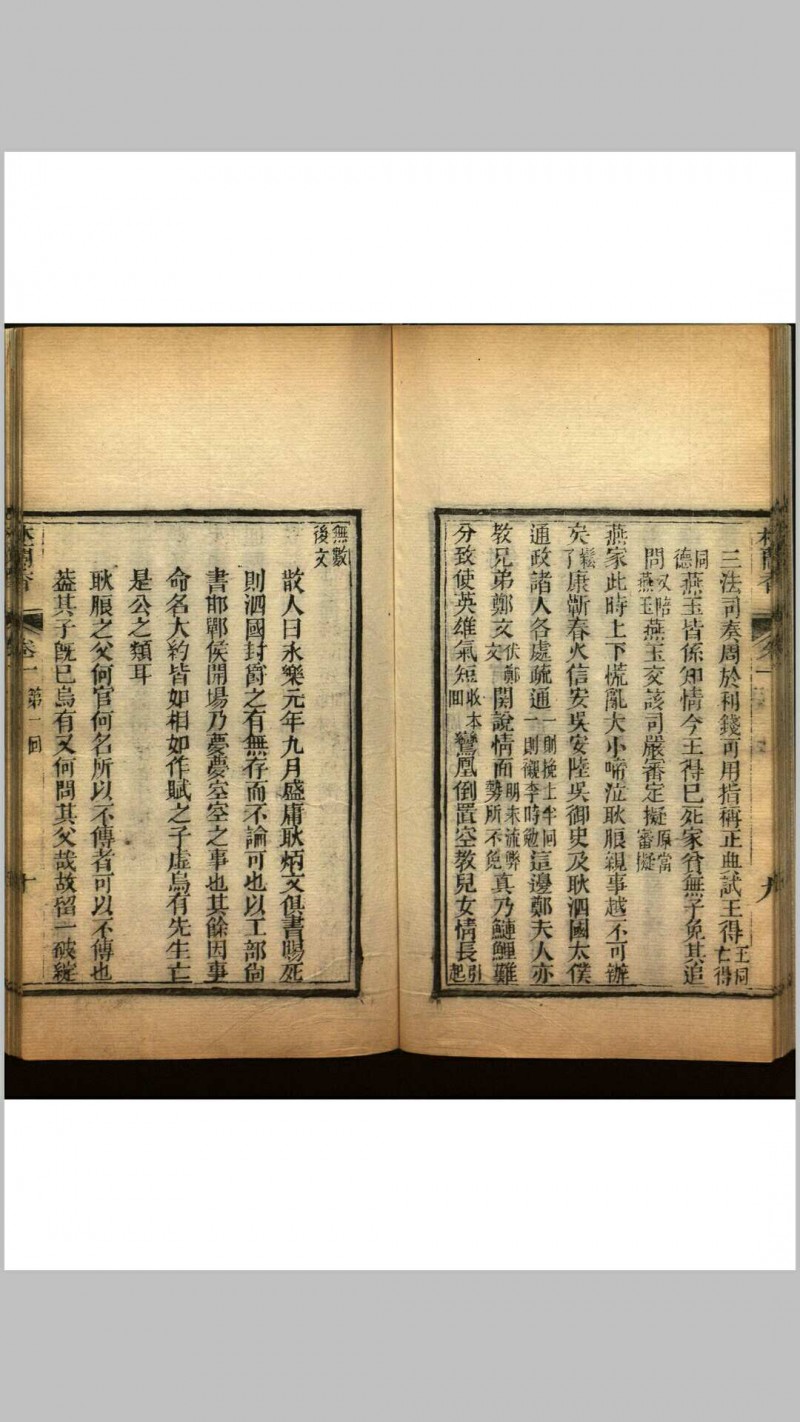 三法司奏周於利錢可用指稱正典試王得王同亡得
同德燕玉皆係知情今王得巳死家貧無子免其追
問又賠燕玉燕玉交該司嚴審定擬原當審擬
燕家此時上下慌亂大小啼泣耿朖親事越不可辦
矣纔了康蘄春火信安吳安陸吳御史及耿泗國太僕
通政諸人各處疏通一則挽上半回一則襯李時勉這邊鄭夫人亦
教兄弟鄭文伏鄭文關說情面明末流弊勢所不免真乃鰱鯉難
分致使英雄氣短收本回鸞凰倒置空教兒女情長引起
無數後文
散人曰永樂元年九月盛庸耿炳文俱書賜死
則泗國封爵之有無存而不論可也以工部尙
書邯鄲侯開場乃憂憂空空之事也其餘因事
命名大約皆如相如作賦之子虛烏有先生亡
是公之類耳
耿朖之父何官何名所以不傳者可以不傳也
葢其子旣巳烏有又何問其父哉故留一破綻
林蘭香 卷一 第一回 十
林蘭香 卷一 九